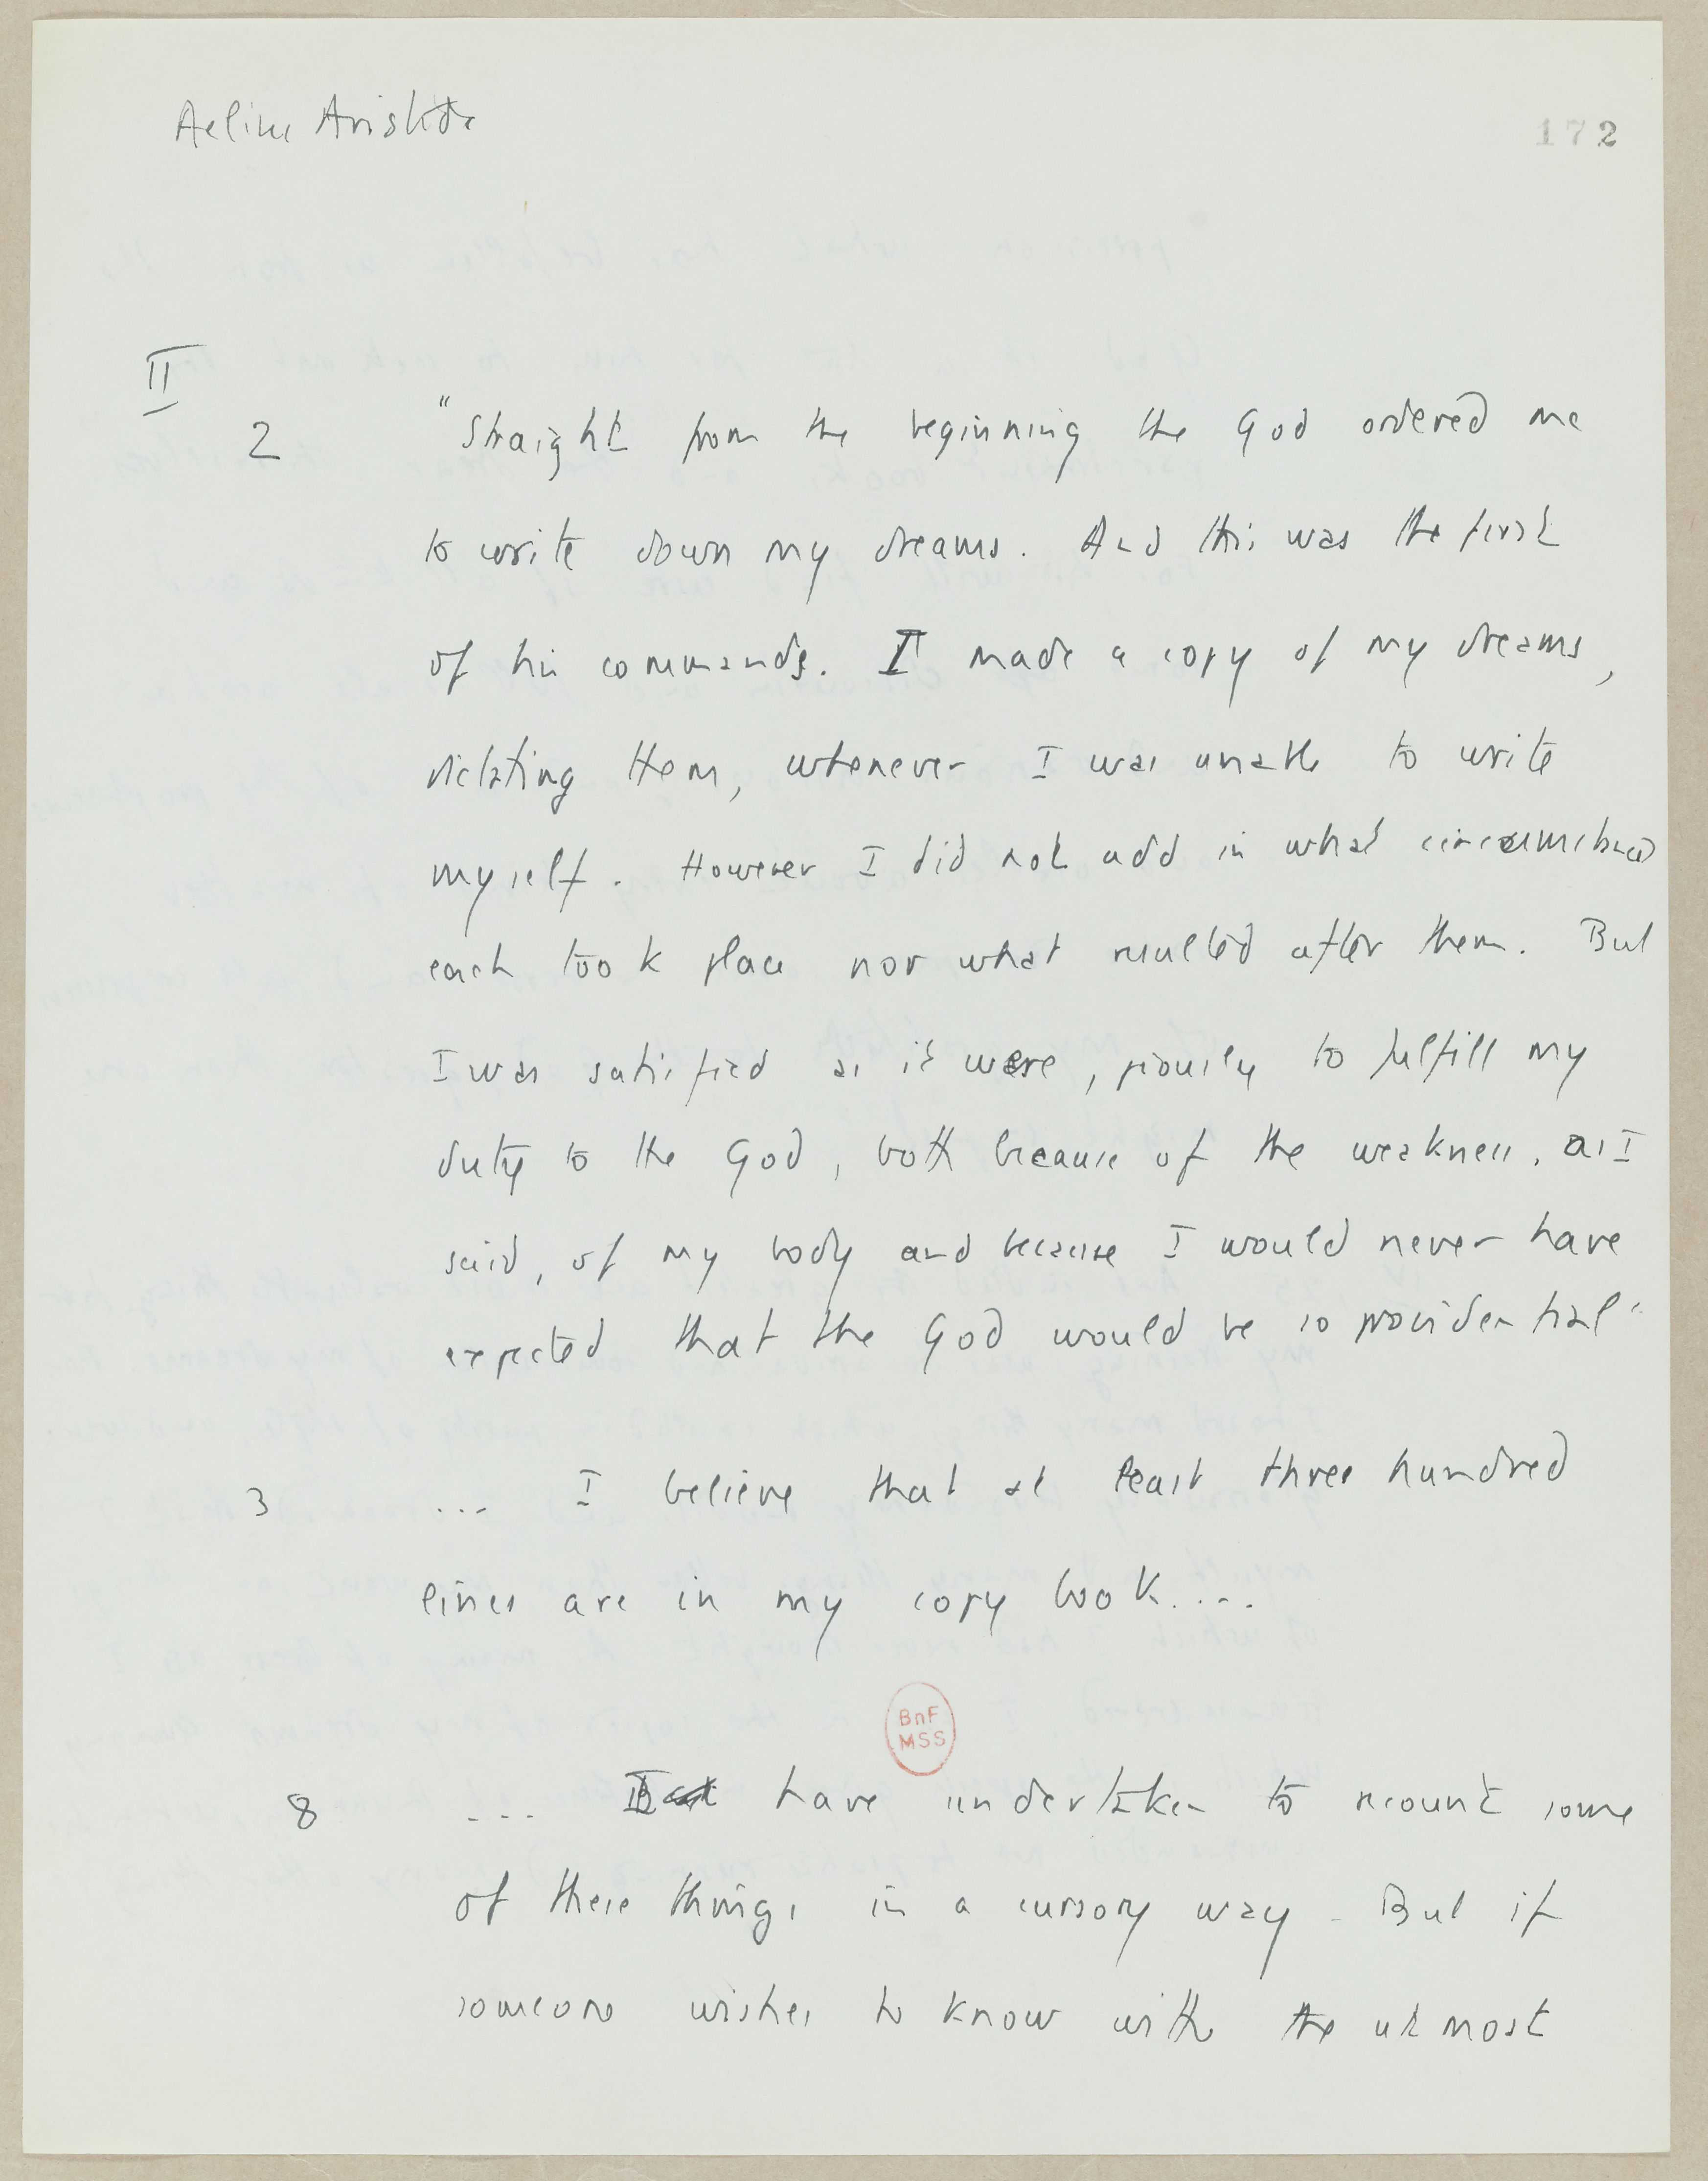 Aelius Aristide
172
II
2 "Straight from the beginning the God ordered me
to write down my dreams. And this was the first
of his commands. I made a copy of my dreams,
dictating them, whenever I was unable to write
myself. However I did not add in what circumstances
each took place nor what resulted after them. But
I was satisfied as it were, piously to fulfill my
duty to the God, both because of the weakness, as I
said, of my body and because I would never have
expected that the God would be so providential"
3 ... I believe that at least three hundred
lines are in my copy book....
BnF
MSS
8 ... I have undertaken to recount some
of these things in a cursory way. But if
someone wishes to know with the utmost